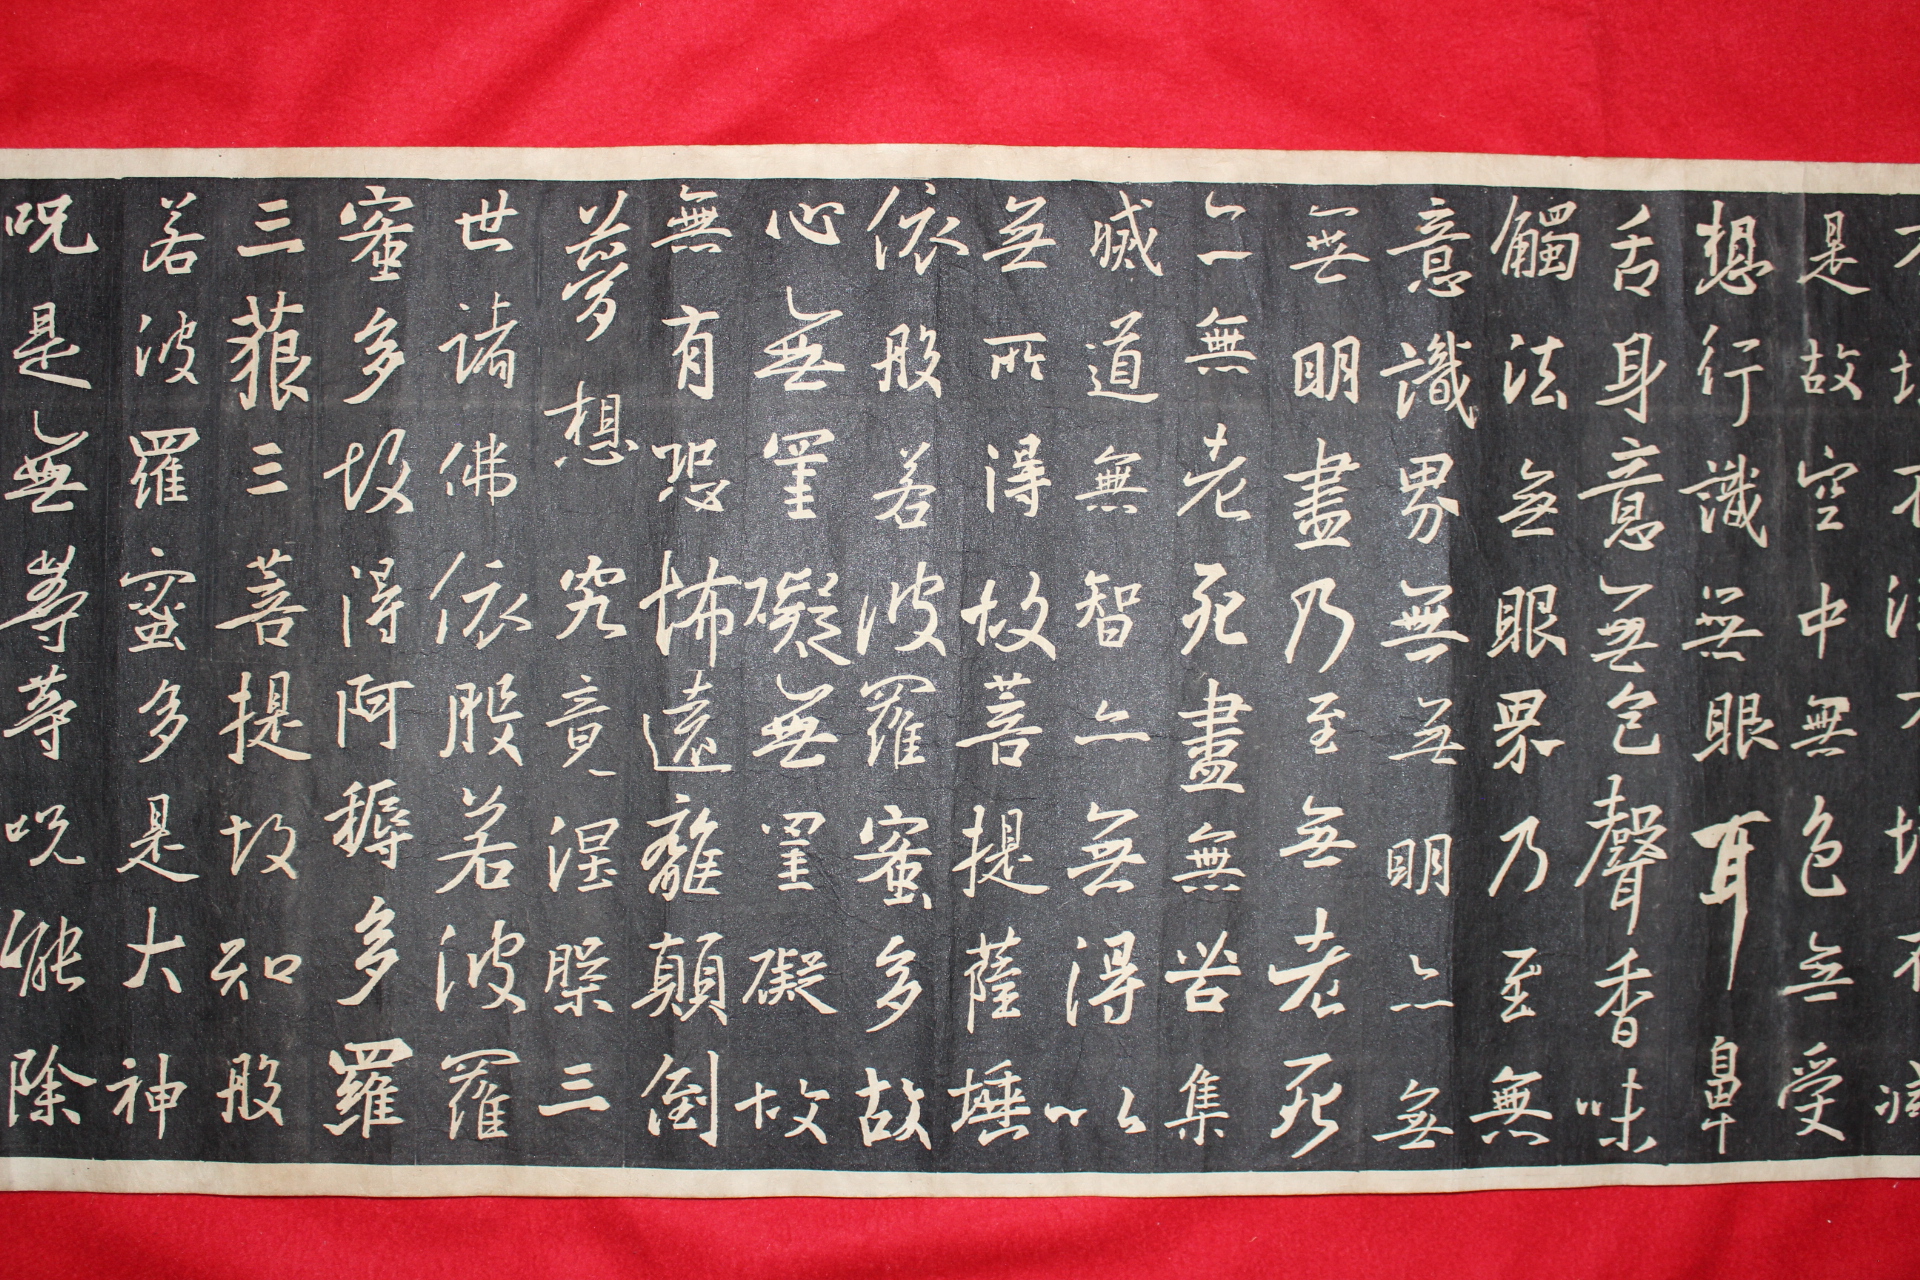 不垢不淨不增不減
是故空中無色無受
想行識無眼耳鼻
舌身意無色聲香味
觸法無眼界乃至無
意識界無無明亦無
無明盡乃至無老死
亦無老死盡無苦集
滅道無智亦無得以
無所得故菩提薩埵
依般若波羅蜜多故
心無罣礙無罣礙故
無有恐怖遠離顛倒
夢想究竟涅槃三
世諸佛依般若波羅
蜜多故得阿耨多羅
三藐三菩提故知般
若波羅蜜多是大神
呪是無等等呪能除